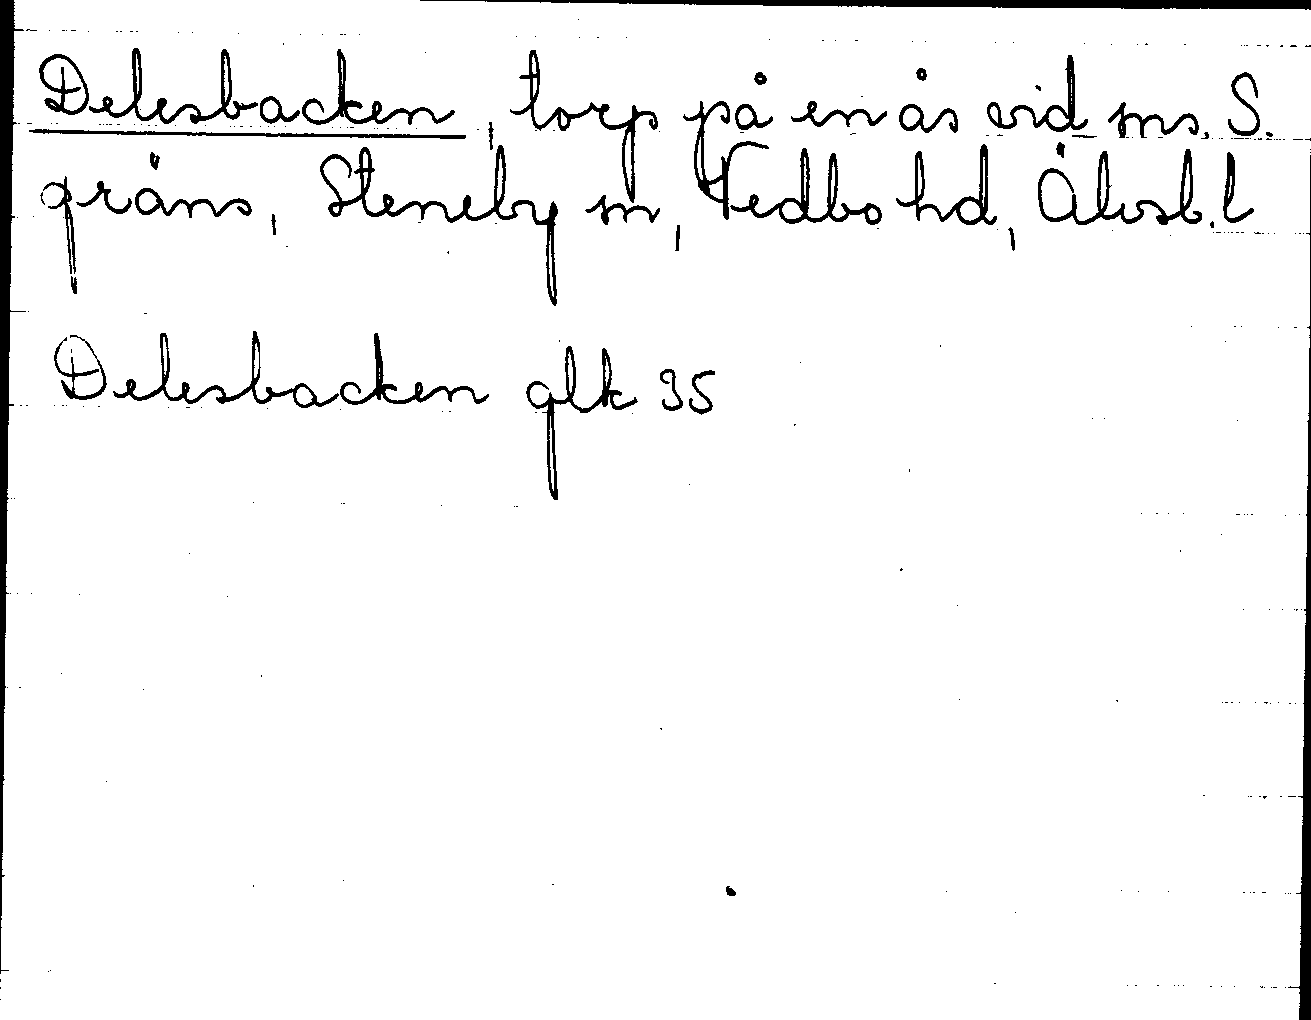 Delesbacken, torp på en ås vid sns. S.
gräns, Steneby sn, Vedbo hd, Älvsb. l
Delesbacken glk 35